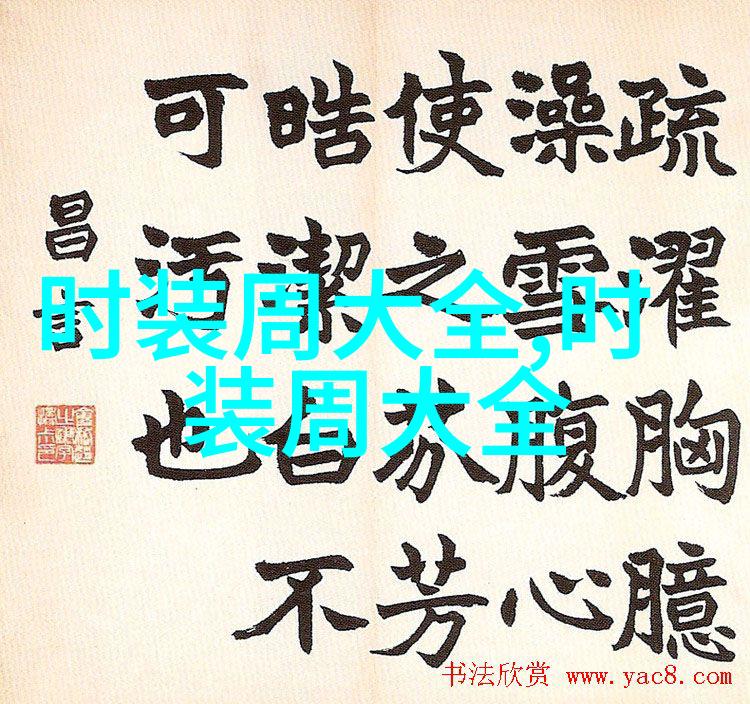 疏濯胸臆
澡雪腹心
使之芬芳
晧潔白不
可也
昌
时装周大全,时
装周大全
书法欣赏 www.yac8.com